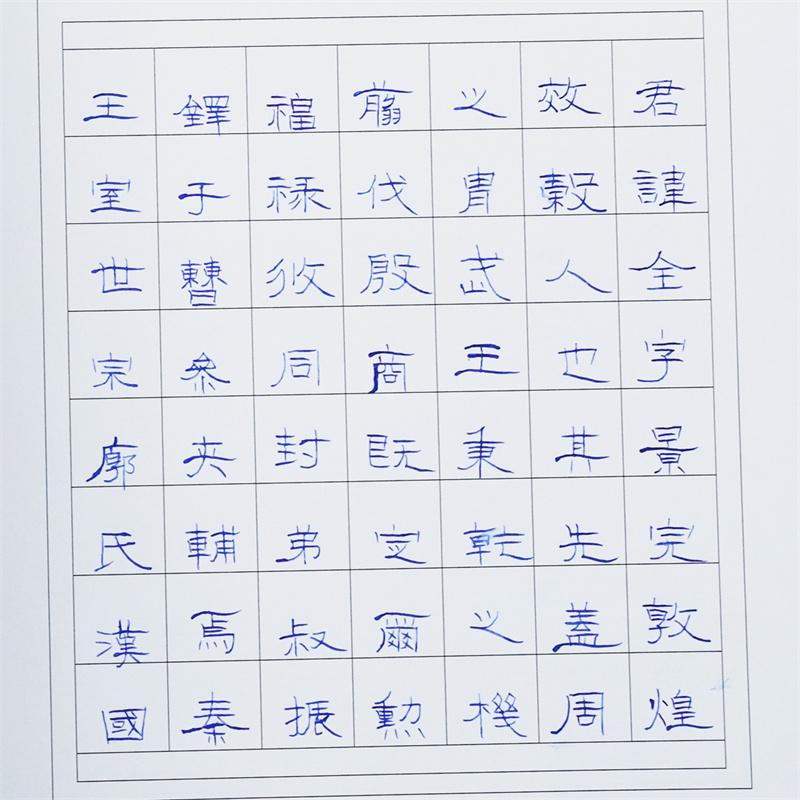 君諱全字景完敦煌
效穀人也其先蓋周
之胄武王秉乾之機
翦伐殷商既定爾勳
福禄攸同封弟叔振
鐸于曹參夾輔焉秦
王室世宗廓氏漢國